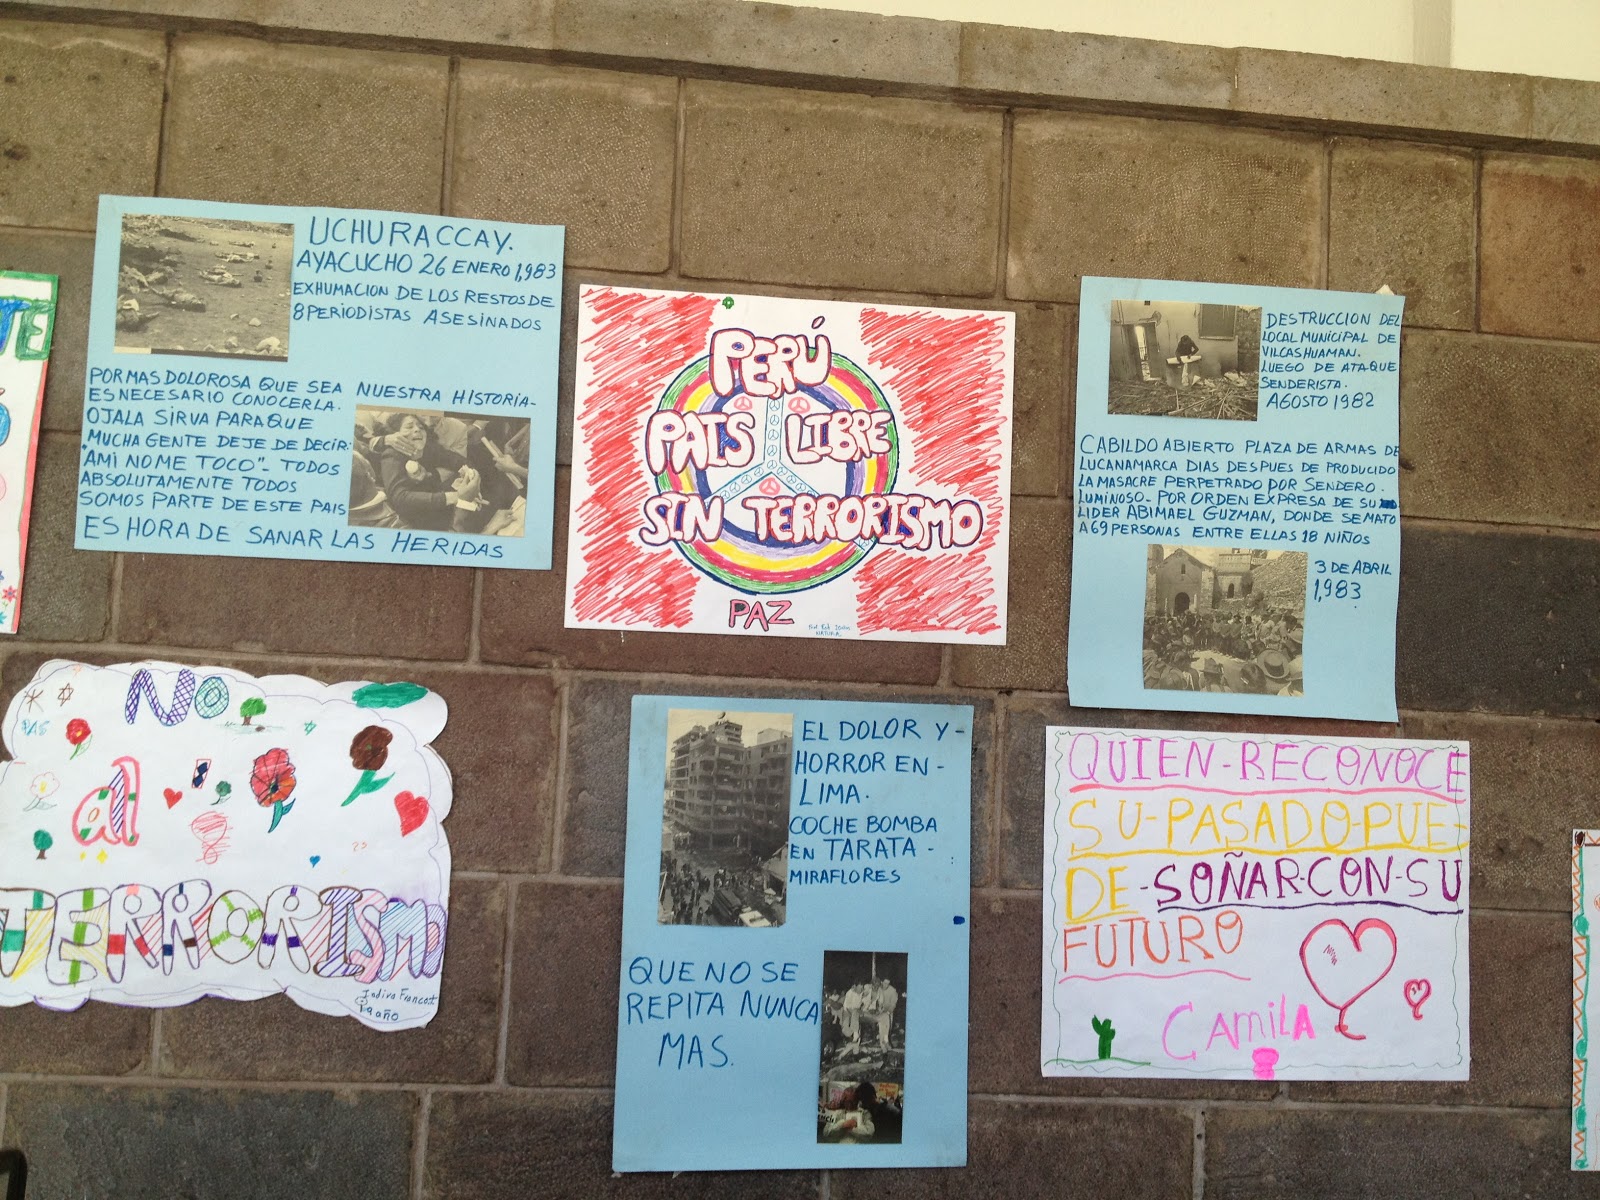 TE
UCHURACCAY.
AYACUCHO 26 ENERO 1,983
EXHUMACION DE LOS RESTOS DE
8 PERIODISTAS ASESINADOS
POR MAS DOLOROSA QUE SEA NUESTRA HISTORIA-
ES NECESARIO CONOCERLA.
OJALA SIRVA PARA QUE
MUCHA GENTE DEJE DE DECIR:
"AMI NO ME TOCO"- TODOS
ABSOLUTAMENTE TODOS
SOMOS PARTE DE ESTE PAIS
ES HORA DE SANAR LAS HERIDAS
PERÚ
PAIS LIBRE
SIN TERRORISMO
PAZ
DESTRUCCION DEL
LOCAL MUNICIPAL DE
VILCASHUAMAN.
LUEGO DE ATAQUE
SENDERISTA.
AGOSTO 1982
CABILDO ABIERTO PLAZA DE ARMAS DE
LUCANAMARCA DIAS DESPUES DE PRODUCIDO
LA MASACRE PERPETRADO POR SENDERO.
LUMINOSO- POR ORDEN EXPRESA DE SU
LIDER ABIMAEL GUZMAN, DONDE SE MATO
A 69 PERSONAS ENTRE ELLAS 18 NIÑOS
3 DE ABRIL
1,983
No
al
TERRORISMO
EL DOLOR Y-
HORROR EN-
LIMA.
COCHE BOMBA
EN TARATA-
MIRAFLORES
QUE NO SE
REPITA NUNCA
MAS.
QUIEN-RECONOCE
SU-PASADO-PUE-
DE-SOÑAR-CON-SU
FUTURO
CAMILA